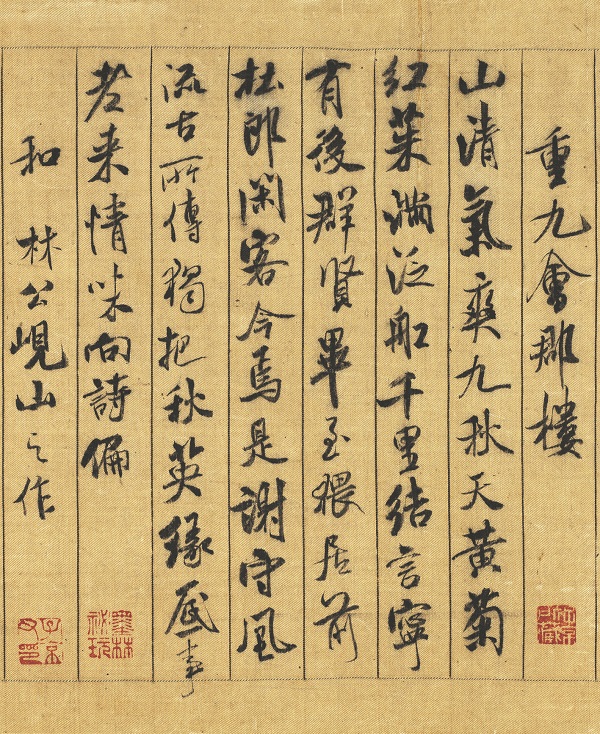 重九會郡樓
山清氣爽九秋天黃菊
紅茱滿泛舡千里結言寧
有後群賢畢至猥居前
杜郎閑客今焉是謝守風
流古所傳獨把秋英緣底事
老來情味向詩偏
墨林祕玩
和林公峴山之作
子京父印